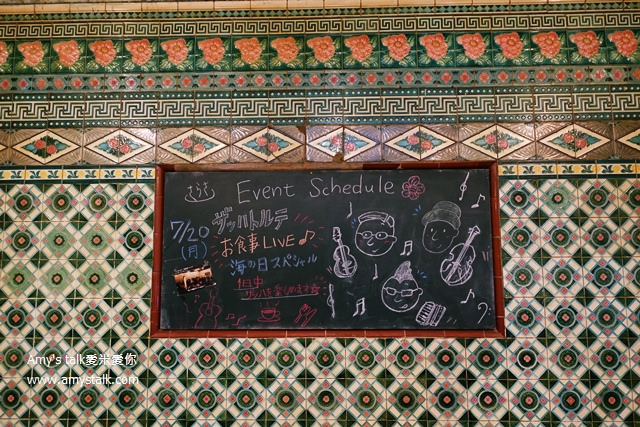 Event Schedule
7/20
(月)
ザッハトルテ
お食事LIVE♪
海の日スペシャル
1日中
Amy's talk愛米愛你
www.amystalk.com